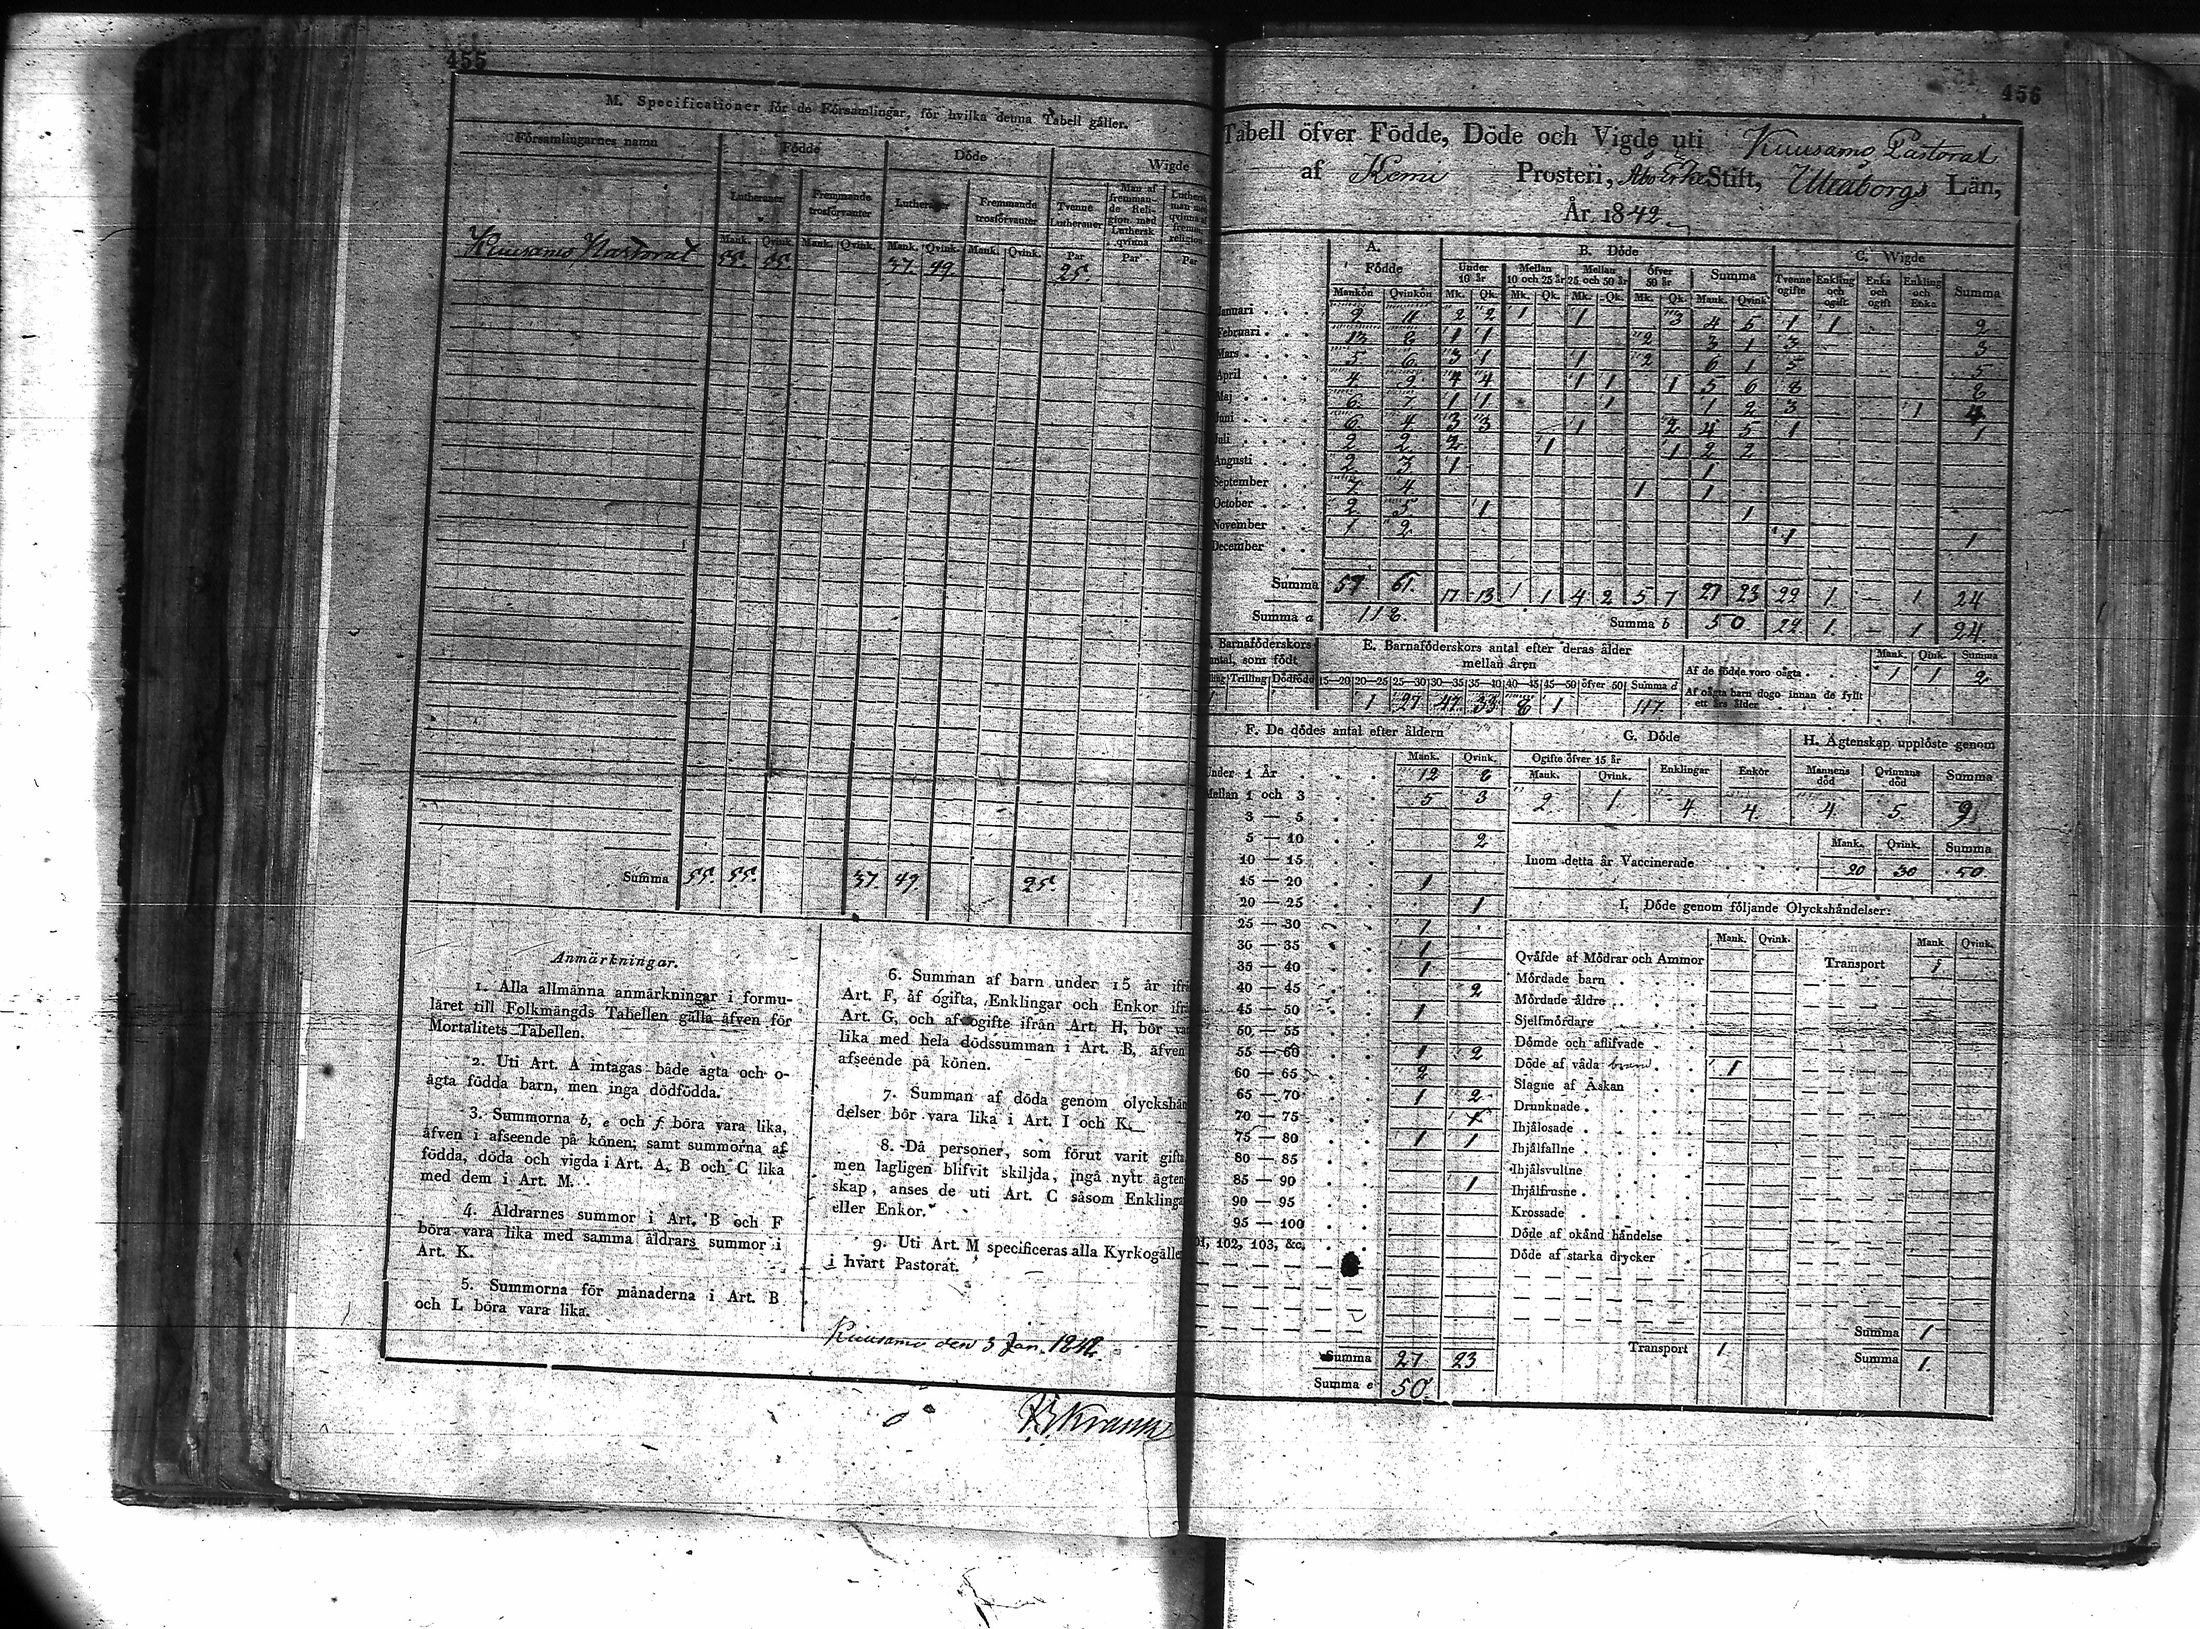 455
M. Specificationer för de Församlingar, för hvilka denna Tabell gäller.
Församlingarnes namn Födde Döde Wigde
Lutheraner Fremmande trosförvanter Lutheraner Fremmande trosförvanter Tvenne Lutheraner Man af fremmande Religion med Luthersk qvinna
Mank. Qvink. Mank. Qvink. Mank. Qvink. Mank. Qvink. Par Par Par
Kuusamo Pastorat 55. 55. 37. 49. 25.
Summa 55. 55. 37. 49. 25
Anmärkningar.
1. Alla allmänna anmärkningar i formu-
läret till Folkmängds Tabellen gälla äfven för
Mortalitets Tabellen.
2. Uti Art. A intagas både ägta och o-
ägta födda barn, men inga dödfödda.
3. Summorna b, e och f böra vara lika,
äfven i afseende på könen; samt summorna af
födda, döda och vigda i Art. A, B och C lika
med dem i Art. M.
4. Åldrarnes summor i Art. B och F
böra vara lika med samma åldrars summor i
Art. K.
5. Summorna för månaderna i Art. B
och L böra vara lika.
6. Summan af barn under 15 år
Art. F, af ogifta, Enklingar och Enkor
Art. G, och af ogifte ifrån Art. H, bör
lika med hela dödssumman i Art. B, äfven
afseende på könen.
7. Summan af döda genom
delser bör vara lika i Art. I och K.
8. Då personer, som förut varit gifta
men lagligen blifvit skiljda, ingå nytt
skap, anses de uti Art. C såsom
eller Enkor.
9. Uti Art. M specificeras alla
i hvart Pastorat.
Kuusamo den 3 Jan. 1842.
456
Tabell öfver Födde, Döde och Vigde uti Kuusamo Pastorat
af Kemi Prosteri, Åbo Erke Stift, Uleåborgs Län,
År 1842
A. Födde B. Döde C. Wigde
Under 10 år Mellan 10 och 25 år Mellan 25 och 50 år Öfver 50 år Summa Tvenne ogifte Enkling och ogift Enka och ogift Enkling och Enka Summa
Mankön Qvinkön Mk. Qk. Mk. Qk. Mk. Qk. Mk. Qk. Mank. Qvink
Januari 9 11 2 2 1 1 3 4 5 1 1 2
Februari 13 8 1 1 2 3 1 3 3
Mars 5 6 3 1 1 2 6 1 5 5
April 4 9 4 4 1 1 1 5 6 8 8
Maj 6 7 1 1 1 1 2 3 1 4
Juni 6 4 3 3 1 2 4 5 1 1
Juli 2 2 2 1 1 2 2
Augusti 2 3 1 1
September 7 4 1 1
October 2 5 1 1
November 1 2 1 1
December
Summa 57 61. 17 13 1 1 4 2 5 7 27 23 22 1 — 1 24
Summa a 118. Summa b 50 22 1. — 1 24.
Barnaföderskors antal, som födt
Trilling Dödfödd
E. Barnaföderskors antal efter deras ålder
mellan åren
15—20 20—25 25—30 30—35 35—40 40—45 45—50 öfver 50 Summa d
1 27 47 33 8 1 117
Mank. Qink. Summa
Af de födde voro oägta 1 1 2
Af oägta barn dogo innan de fyllt
ett års ålder
F. De dödes antal efter åldern
Mank. Qvink.
Under 1 År 12 8
Mellan 1 och 3 5 3
3 — 5
5 — 10 2
10 — 15
15 — 20 1
20 — 25 1
25 — 30 1
30 — 35 1
35 — 40 1
40 — 45 2
45 — 50 1
50 — 55
55 — 60 1 2
60 — 65 2
65 — 70 1 2
70 — 75 1
75 — 80 1 1
80 — 85
85 — 90 1
90 — 95
95 — 100
101, 102, 103, &c.
Summa 27 23
Summa e 50.
G. Döde
Ogifte öfver 15 år Enklingar Enkor
Mank. Qvink.
2 1 4 4
H. Ägtenskap upplöste genom
Mannens död Qvinnans död Summa
4 5. 9
Mank. Qvink. Summa
Inom detta år Vaccinerade 20 30 50
I. Döde genom följande Olyckshändelser:
Mank. Qvink. Mank Qvink.
Qväfde af Mödrar och Ammor Transport 1
Mördade barn
Mördade äldre
Sjelfmördare
Dömde och aflifvade
Döde af våda brand 1
Slagne af Åskan
Drunknade
Ihjälosade
Ihjälfallne
Ihjälsvultne
Ihjälfrusne
Krossade
Döde af okänd händelse
Döde af starka drycker
Summa 1
Transport 1 Summa 1.